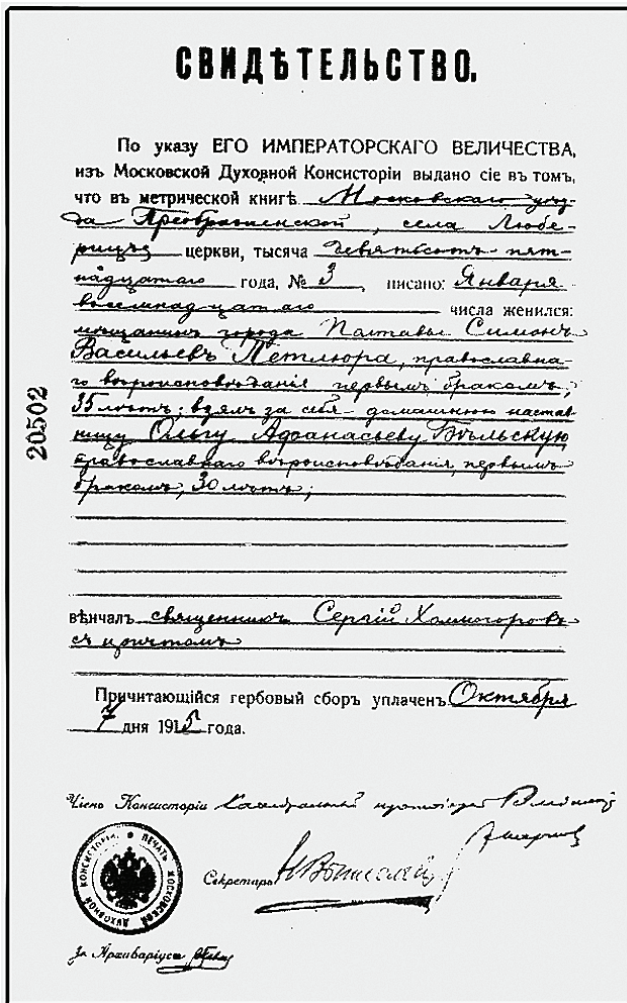 СВИДѢТЕЛЬСТВО.
По указу ЕГО ИМПЕРАТОРСКАГО ВЕЛИЧЕСТВА,
изъ Московской Духовной Консисторіи выдано сіе въ томъ,
что въ метрической книгѣ Московскаго уѣз-
да Преображенской, села Любе-
рицъ церкви, тысяча девятьсотъ пят-
надцатаго года, № 3, писано: Января
восемнадцатаго числа женился:
мѣщанинъ города Полтавы Симонъ
Васильевъ Петлюра, православна-
го вѣроисповѣданія первымъ бракомъ,
35 лѣтъ; взялъ за себя домашнюю настав-
ницу Ольгу Афанасьеву Бѣльскую
православнаго вѣроисповѣданія, первымъ
бракомъ, 30 лѣтъ;
20502
вѣнчалъ священникъ Сергій Холмогоровъ
съ причтомъ
Причитающійся гербовый сборъ уплаченъ Октября
7 дня 1915 года.
Членъ Консисторіи Каѳедральный протоіерей
Секретарь
ПЕЧАТЬ МОСКОВСКОЙ ДУХОВНОЙ КОНСИСТОРІИ
За Архиваріуса